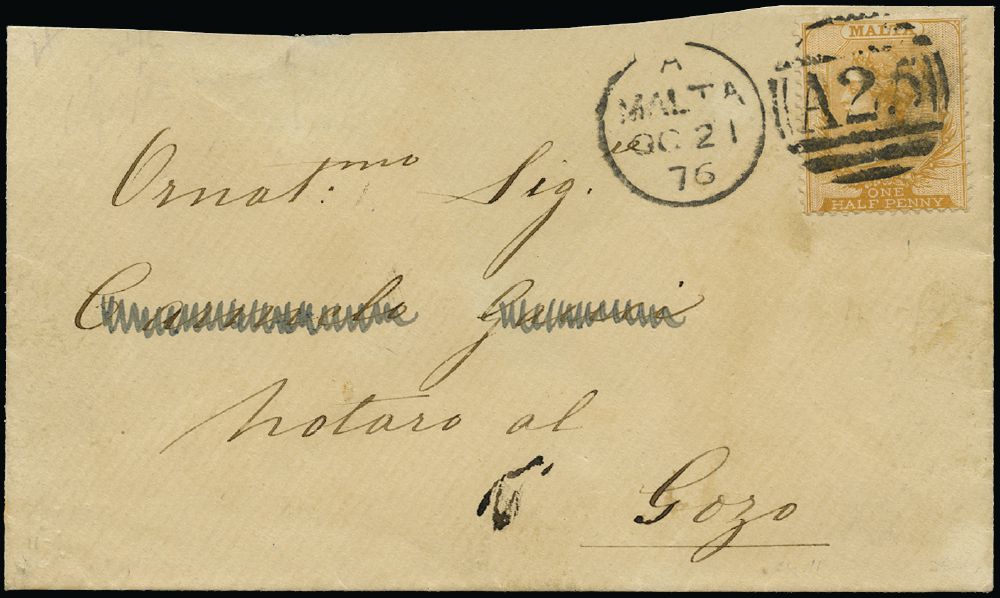 A
MALTA
OC 21
76
A25
MALTA
ONE
HALF PENNY
Ornat.mo Sig.re
Notaro al
Gozo